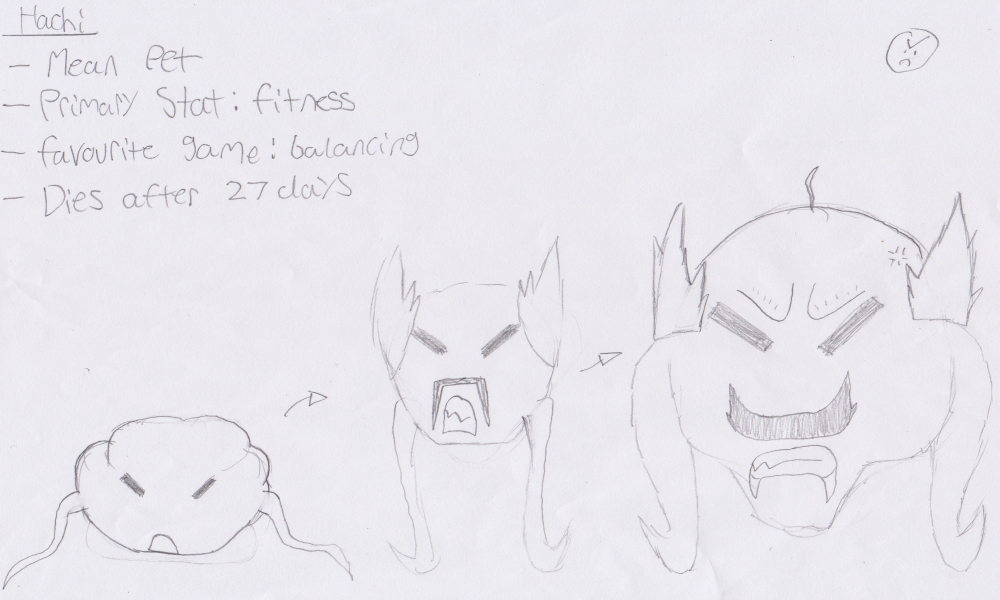 Hachi
- Mean Pet
- Primary Stat: fitness
- favourite game: balancing
- Dies after 27 days